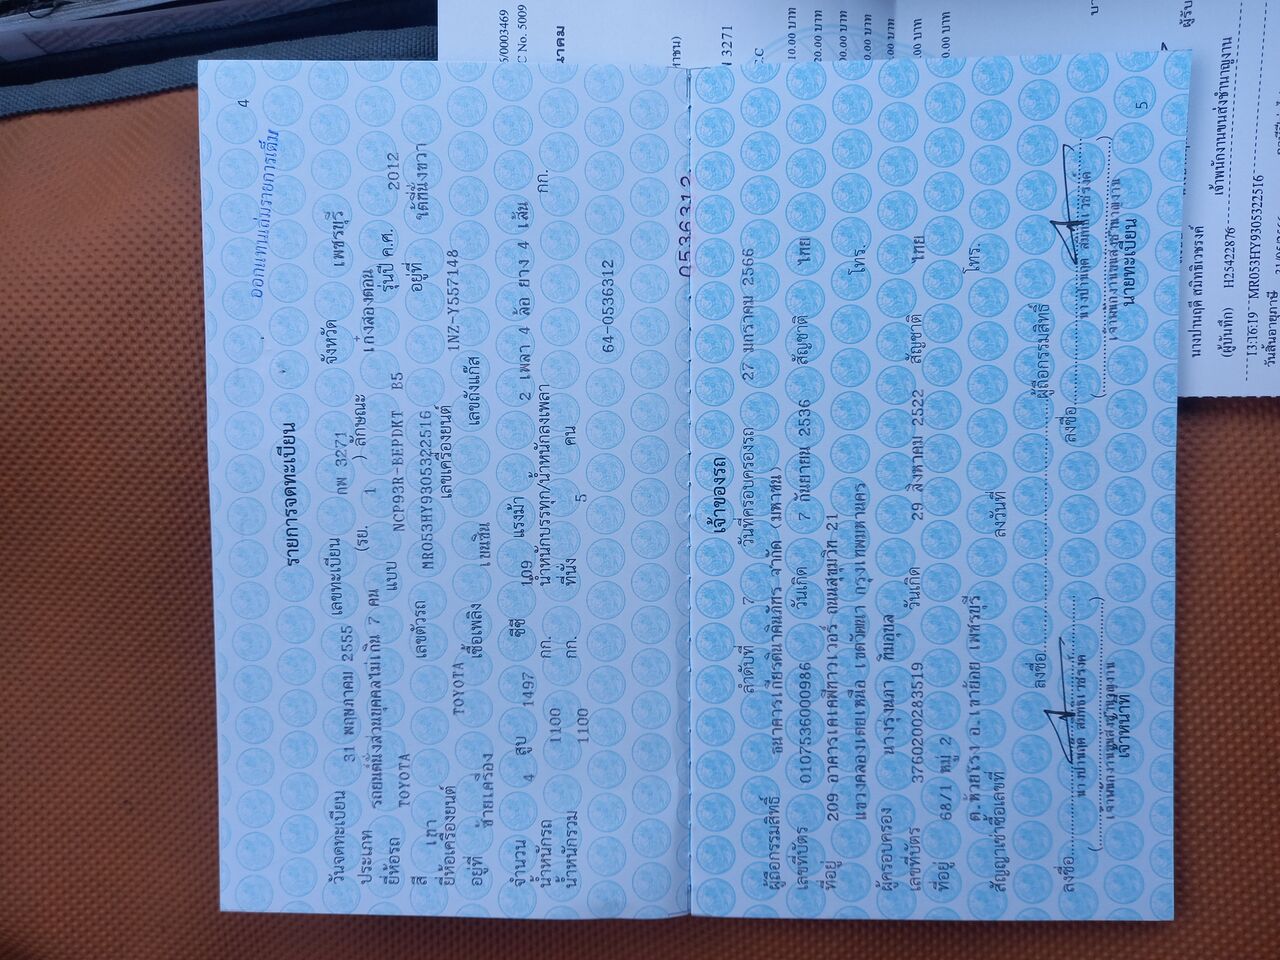 4
ออกแทนเล่มรายการเต็ม
รายการจดทะเบียน
วันจดทะเบียน 31 พฤษภาคม 2555 เลขทะเบียน กพ 3271 จังหวัด เพชรบุรี
ประเภท รถยนต์นั่งส่วนบุคคลไม่เกิน 7 คน (รย. 1 ) ลักษณะ เก๋งสองตอน
ยี่ห้อรถ TOYOTA แบบ NCP93R-BEPDKT B5 รุ่นปี ค.ศ. 2012
สี เทา เลขตัวรถ MR053HY9305322516 อยู่ที่ ใต้ที่นั่งขวา
ยี่ห้อเครื่องยนต์ TOYOTA เลขเครื่องยนต์ 1NZ-Y557148
อยู่ที่ ซ้ายเครื่อง เชื้อเพลิง เบนซิน เลขถังแก๊ส
จำนวน 4 สูบ 1497 ซีซี 109 แรงม้า 2 เพลา 4 ล้อ ยาง 4 เส้น
น้ำหนักรถ 1100 กก. น้ำหนักบรรทุก/น้ำหนักลงเพลา กก.
น้ำหนักรวม 1100 กก. ที่นั่ง 5 คน
64-0536312
0536312
เจ้าของรถ
ลำดับที่ 7 วันที่ครอบครองรถ 27 มกราคม 2566
ผู้ถือกรรมสิทธิ์ ธนาคารเกียรตินาคินภัทร จำกัด (มหาชน)
เลขที่บัตร 0107536000986 วันเกิด 7 กันยายน 2536 สัญชาติ ไทย
ที่อยู่ 209 อาคารเคเคพีทาวเวอร์ ถนนสุขุมวิท 21
แขวงคลองเตยเหนือ เขตวัฒนา กรุงเทพมหานคร โทร.
ผู้ครอบครอง นางรุ่งนภา ทิมอุบล
เลขที่บัตร 3760200283519 วันเกิด 29 สิงหาคม 2522 สัญชาติ ไทย
ที่อยู่ 68/1 หมู่ 2
ต.ห้วยโรง อ.เขาย้อย เพชรบุรี โทร.
สัญญาเช่าซื้อเลขที่ ลงวันที่
ลงชื่อ ผู้ถือกรรมสิทธิ์
ลงชื่อ ลงชื่อ
เจ้าพนักงานขนส่งชำนาญงาน เจ้าพนักงานขนส่งชำนาญงาน
เจ้าหน้าที่ นายทะเบียน
5
5/0003469
C No. 5009
3271
10.00 บาท
20.00 บาท
0.00 บาท
เจ้าพนักงานขนส่งชำนาญงาน
(ผู้บันทึก) H25422876
13:16:19 MR053HY9305322516
วันสิ้นอายุภาษี